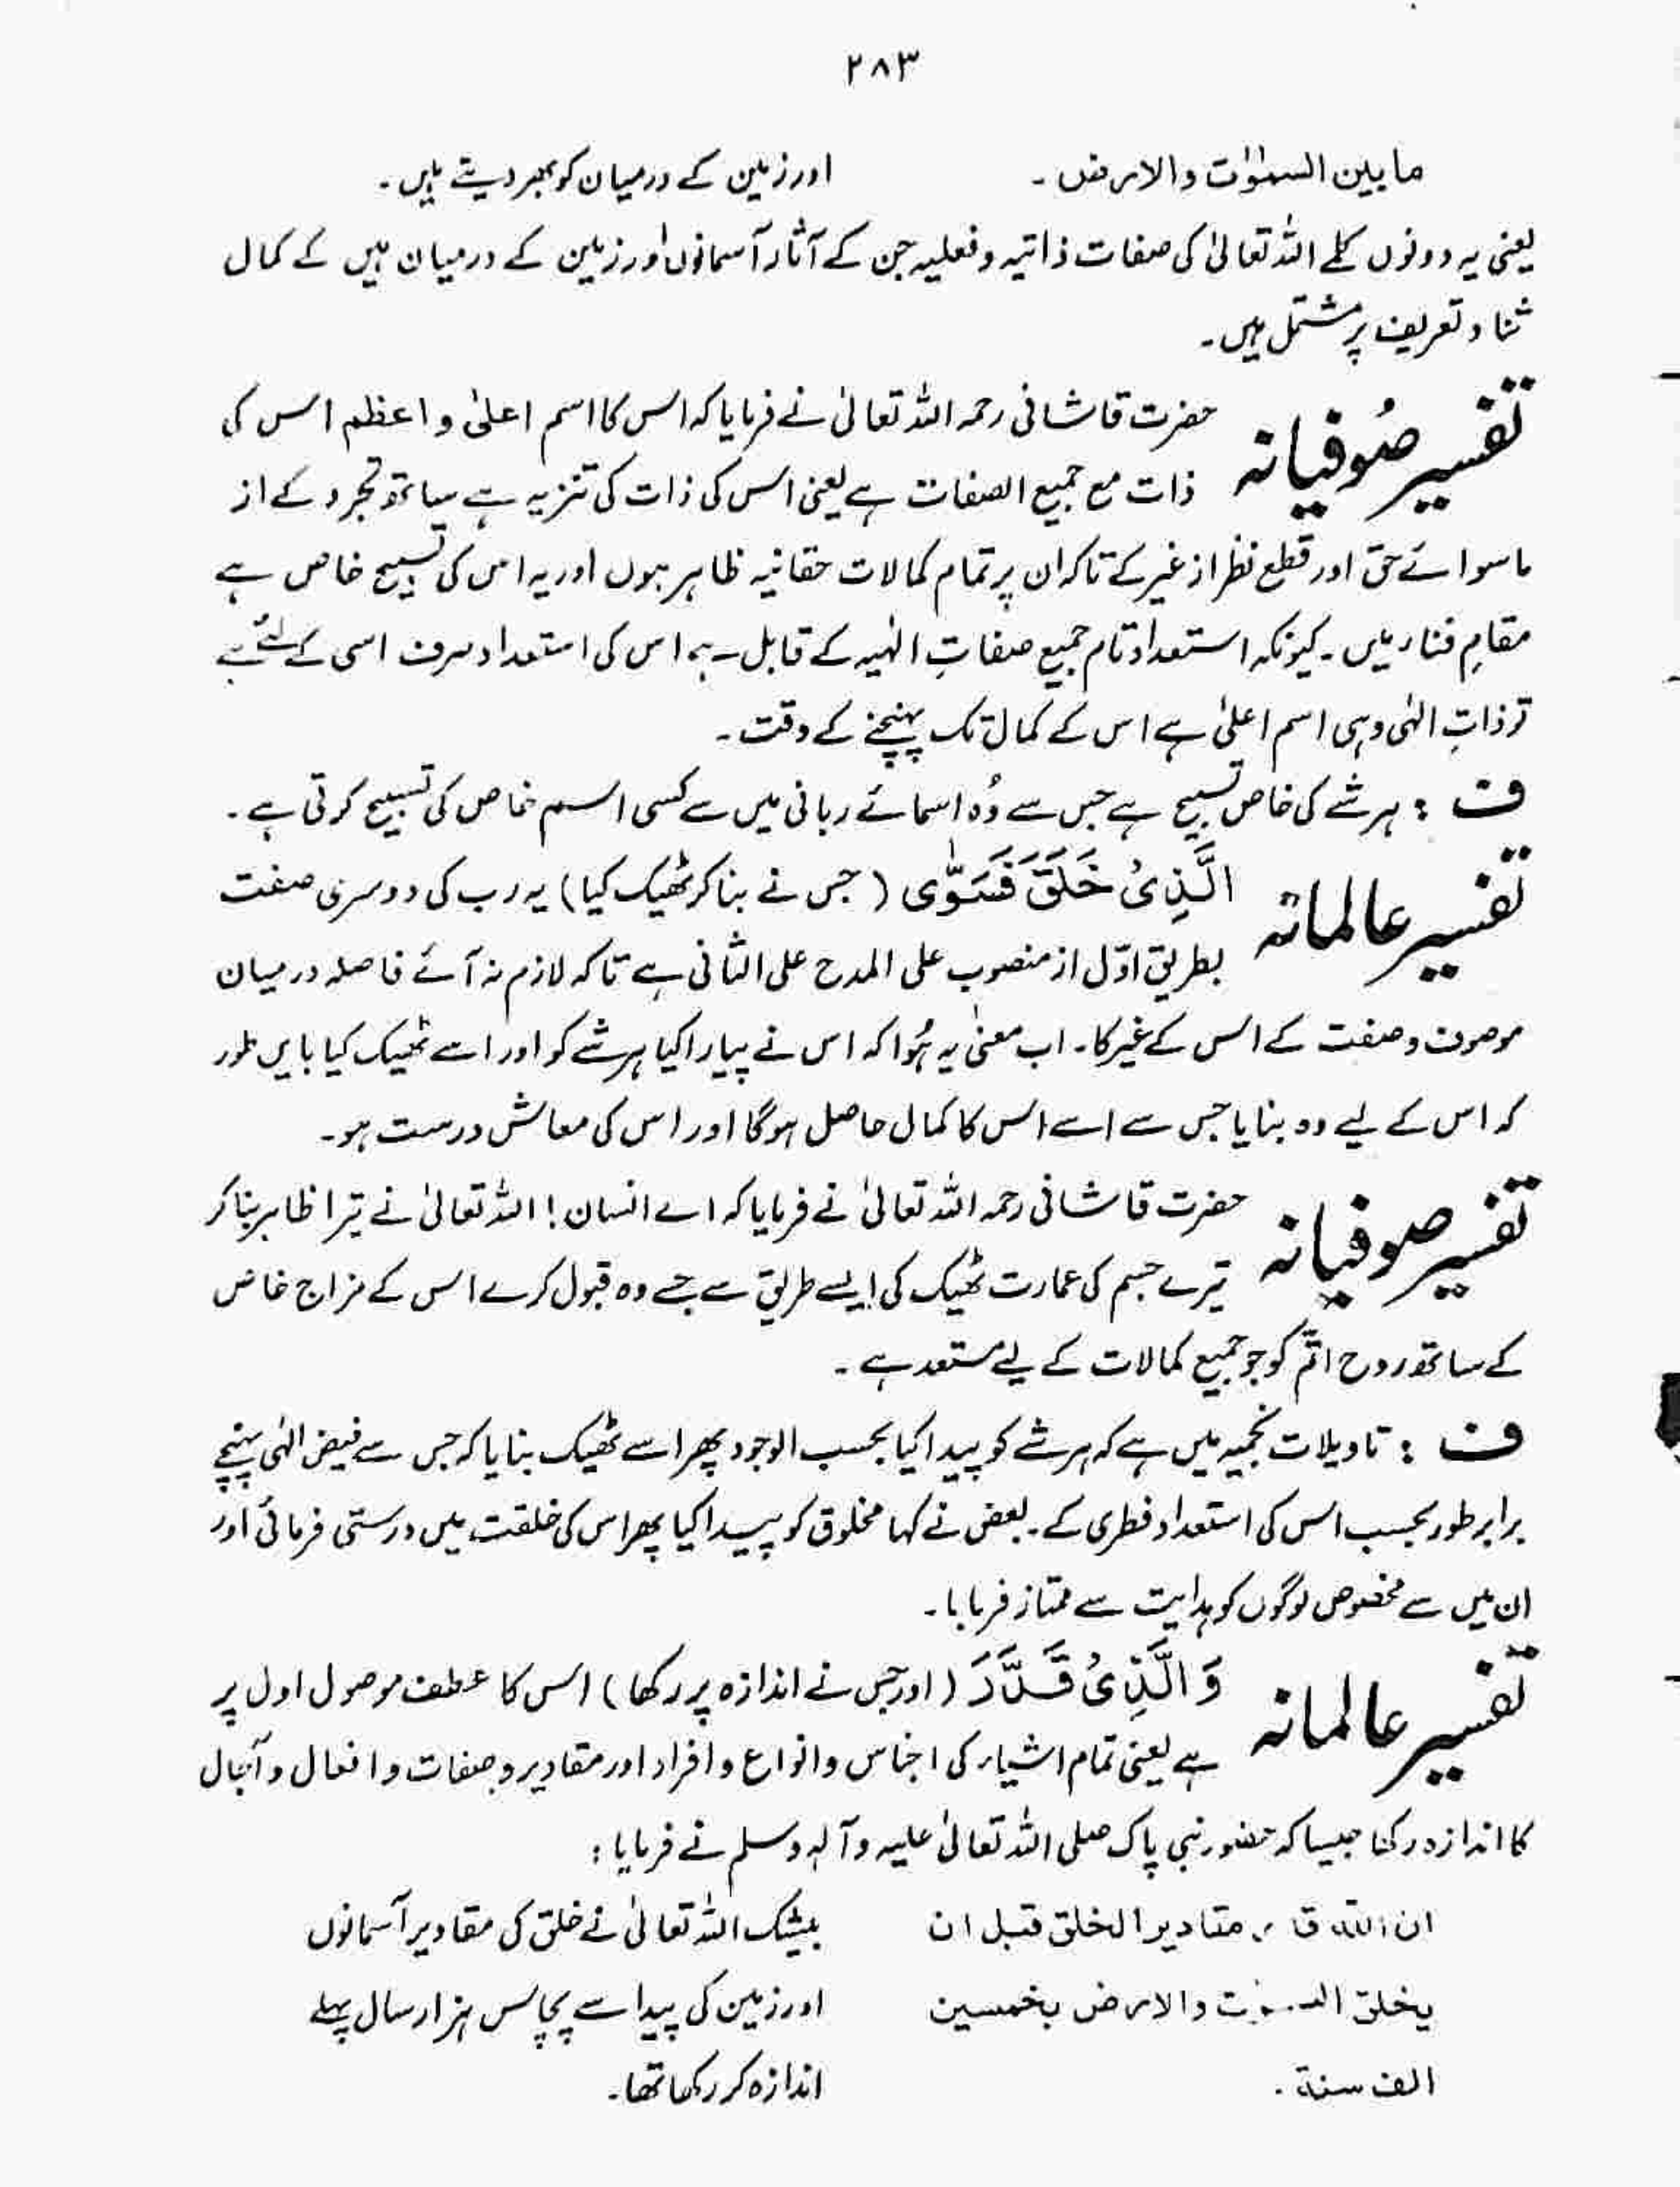 ۲۸۳
مابین السمٰوٰت والارض۔ اور زمین کے درمیان کو بھر دیتے ہیں۔
یعنی یہ دونوں کلمے اللہ تعالیٰ کی صفات ذاتیہ و فعلیہ جن کے آثار آسمانوں اور زمین کے درمیان ہیں کے کمال
ثنا و تعریف پر مشتمل ہیں۔
تفسیر صُوفیانہ حضرت قاشانی رحمہ اللہ تعالیٰ نے فرمایا کہ اس کا اسم اعلیٰ و اعظم اس کی
ذات مع جمیع الصفات ہے یعنی اس کی ذات کی تنزیہ ہے ساتھ تجرد کے از
ماسوائے حق اور قطع نظر از غیر کے تاکہ ان پر تمام کمالات حقانیہ ظاہر ہوں اور یہ اس کی تسبیح خاص ہے
مقامِ فناء میں۔ کیونکہ استعداد تام جمیع صفاتِ الٰہیہ کے قابل ہے اس کی استعداد صرف اسی کے لئے ہے
تو ذاتِ الٰہی وہی اسم اعلیٰ ہے اس کے کمال تک پہنچنے کے وقت۔
ف : ہر شے کی خاص تسبیح ہے جس سے وُہ اسمائے ربانی میں سے کسی اسم خاص کی تسبیح کرتی ہے۔
تفسیر عالمانہ الَّذِیْ خَلَقَ فَسَوّٰی (جس نے بنا کر ٹھیک کیا) یہ رب کی دوسری صفت
بطریق اوّل از منصوب علی المدح علی الثانی ہے تاکہ لازم نہ آئے فاصلہ درمیان
موصوف و صفت کے اس کے غیر کا۔ اب معنیٰ یہ ہُوا کہ اس نے پیارا کیا ہر شے کو اور اسے ٹھیک کیا بایں طور
کہ اس کے لیے وہ بنایا جس سے اسے اس کا کمال حاصل ہوگا اور اس کی معاش درست ہو۔
تفسیر صوفیانہ حضرت قاشانی رحمہ اللہ تعالیٰ نے فرمایا کہ اے انسان! اللہ تعالیٰ نے تیرا ظاہر بنا کر
تیرے جسم کی عمارت ٹھیک کی ایسے طریق سے جسے وہ قبول کرے اس کے مزاج خاص
کے ساتھ روح اتمّ کو جو جمیع کمالات کے لیے مستعد ہے۔
ف : تاویلات نجمیہ میں ہے کہ ہر شے کو پیدا کیا بحسب الوجود پھر اسے ٹھیک بنایا کہ جس سے فیض الٰہی پہنچے
برابر طور بحسب اس کی استعداد فطری کے۔ بعض نے کہا مخلوق کو پیدا کیا پھر اس کی خلقت میں درستی فرمائی اور
ان میں سے مخصوص لوگوں کو ہدایت سے ممتاز فرمایا۔
تفسیر عالمانہ وَ الَّذِیْ قَدَّرَ (اور جس نے اندازہ پر رکھا) اس کا عطف موصول اول پر
ہے یعنی تمام اشیاء کی اجناس و انواع و افراد اور مقادیر و صفات و افعال و آجال
کا اندازہ رکنا جیسا کہ حضور نبی پاک صلی اللہ تعالیٰ علیہ وآلہٖ وسلم نے فرمایا :
ان اللہ مقادیر الخلق قبل ان بیشک اللہ تعالیٰ نے خلق کی مقادیر آسمانوں
یخلق السمٰوٰت والارض بخمسین اور زمین کی پیدا سے پچاس ہزار سال پہلے
الف سنة۔ اندازہ کر رکھا تھا۔